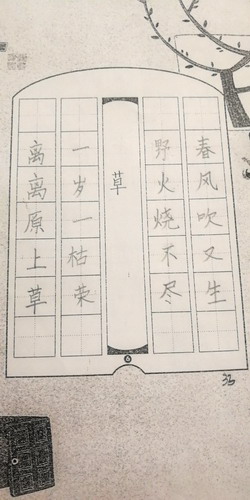 离离原上草
一岁一枯荣
草
野火烧不尽
春风吹又生
33